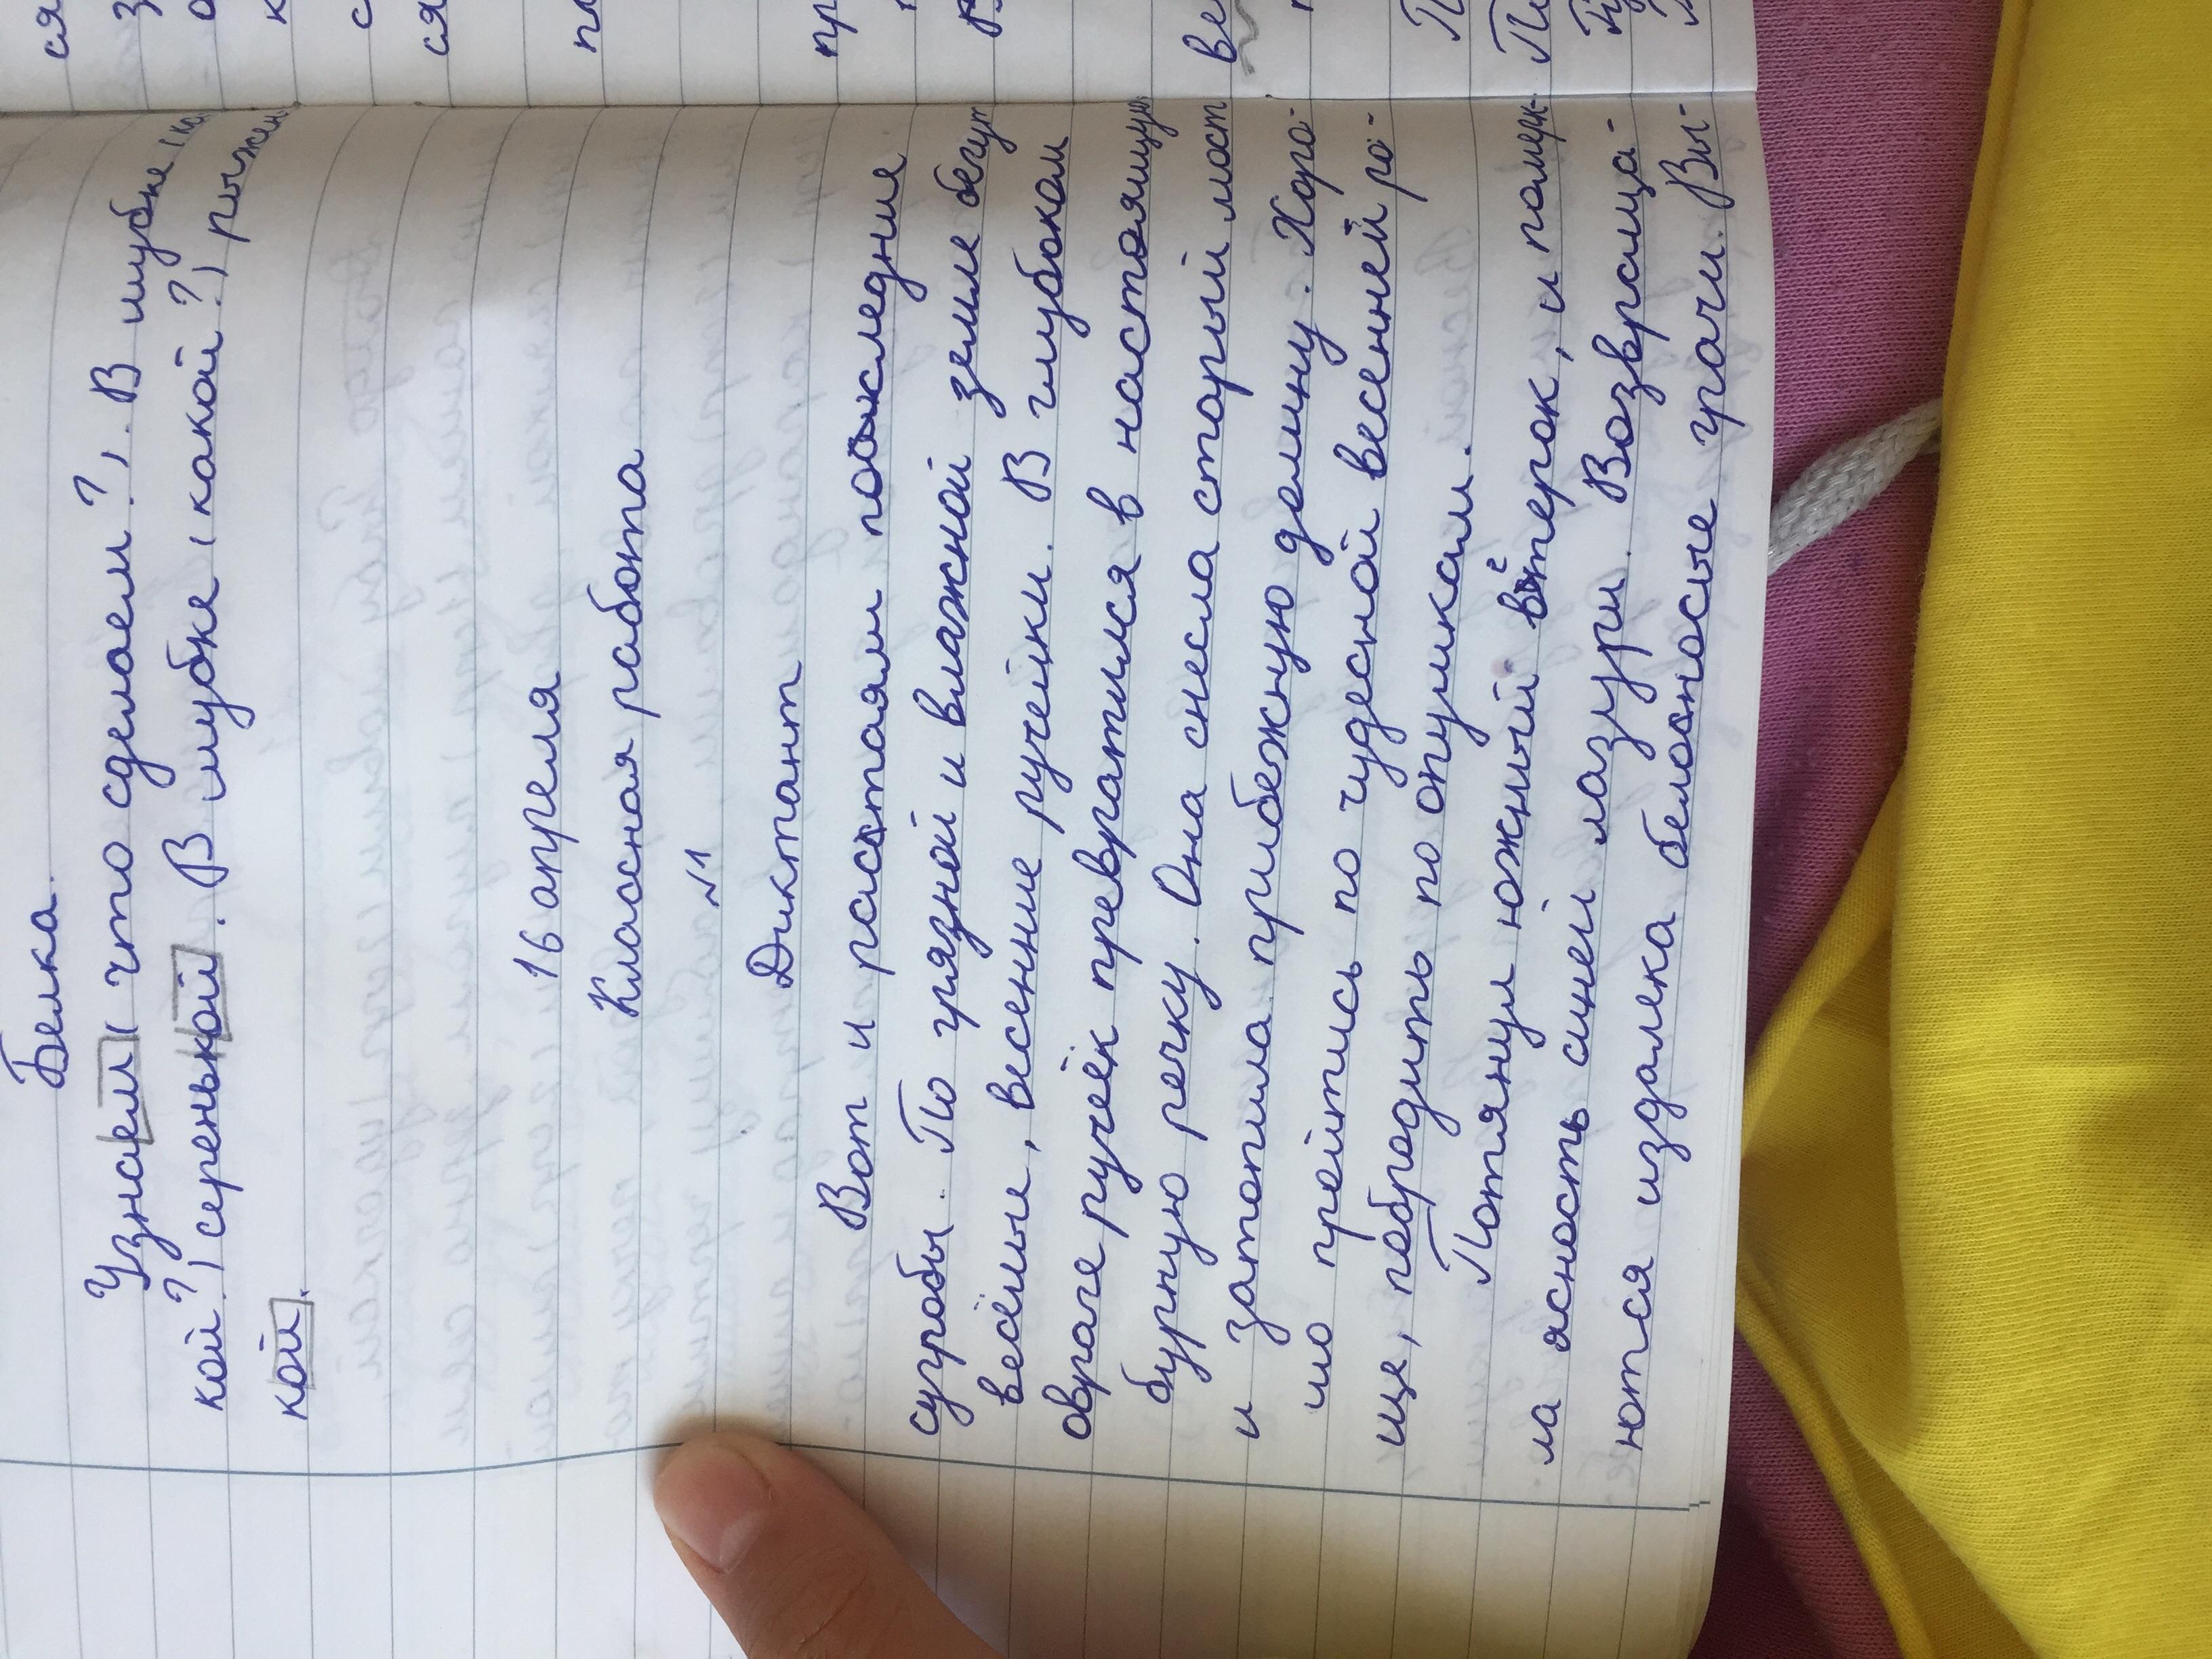 Белка.
Узнаем (что сделаем?). В шубке (ка-
кой?) серенькой. В шубке (какой?) рыжень-
кой.
16 апреля
Классная работа
№1
Диктант
Вот и растаяли последние
сугробы. По грязной и влажной земле бегут
весёлые, весенние ручейки. В глубоком
овраге ручеёк превратился в настоящую
бурную речку. Она снесла старый мост
и затопила прибежную долину. Хоро-
шо пройтись по чудесной весенней ро-
ще, побродить по опушкам.
Потянул южный ветерок, и померк-
ла ясность синей лазури. Возвраща-
ются издалека белоносые грачи. Вы-